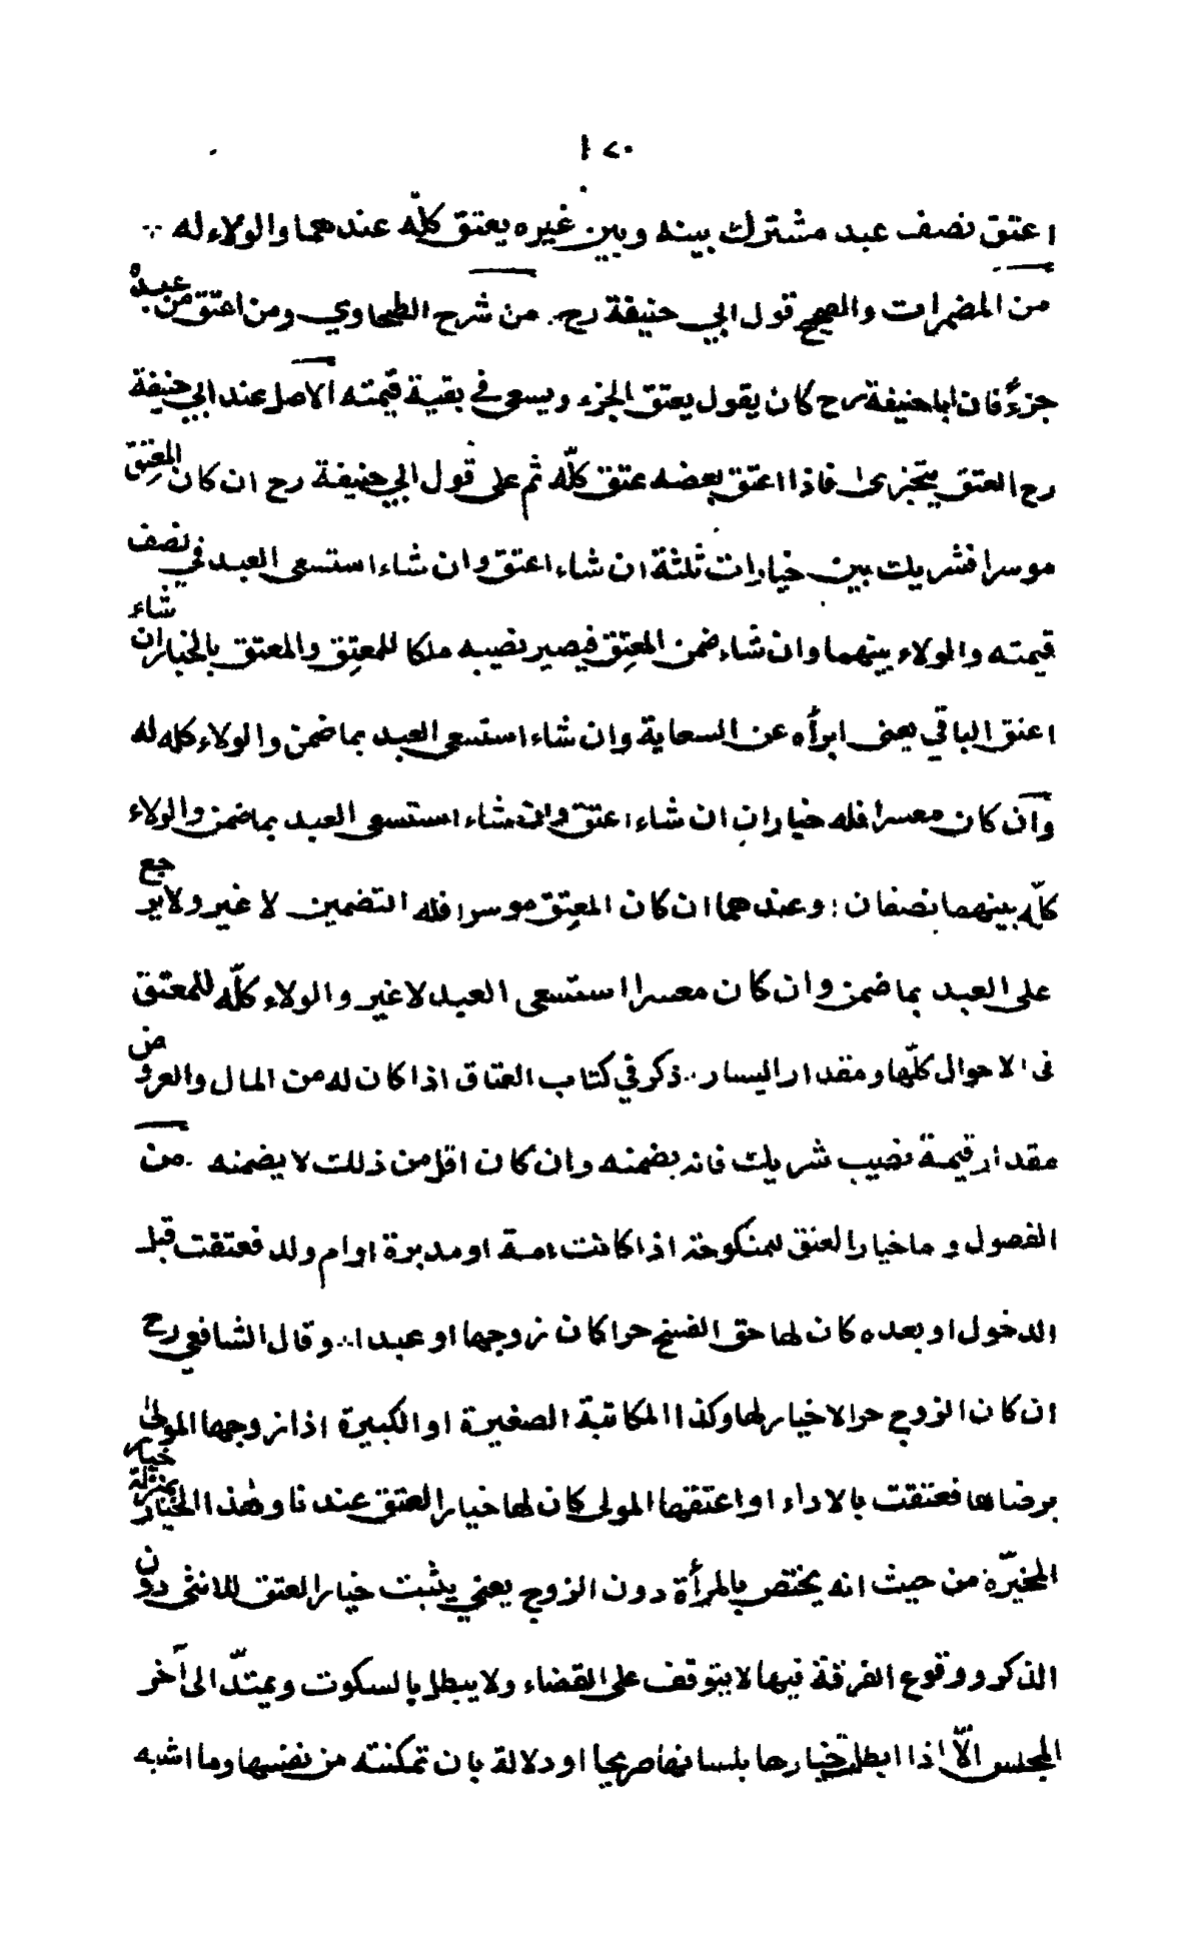 ١٧٠
اعتق نصف عبد مشترك بينه وبين غيره يعتق كلّه عندهما والولاء له ∴
من المضمرات والصحيح قول ابي حنيفة رح. من شرح الطحاوي ومن اعتق من عبده
جزءً فان اباحنيفة رح كان يقول يعتق الجزء ويسعى في بقية قيمته الاصل عند ابي حنيفة
رح العتق يتجزى فاذا اعتق بعضه عتق كلّه ثم على قول ابي حنيفة رح ان كان المعتِق
موسرا فشريك بين خيارات ثلثة ان شاء اعتق وان شاء استسعى العبد في نصف
قيمته والولاء بينهما وان شاء ضمن المعتِق فيصير نصيبه ملكا للمعتِق والمعتق بالخيار ان شاء
اعتق الباقي يعنى ابرأه عن السعاية وان شاء استسعى العبد بما ضمن والولاء كله له
وان كان معسرا فله خياران ان شاء اعتق وان شاء استسعى العبد بما ضمن والولاء
كلّه بينهما نصفان ؛ وعندهما ان كان المعتِق موسرا فله التضمين لا غير ولا يرجع
على العبد بما ضمن وان كان معسرا استسعى العبد لا غير والولاء كلّه للمعتق
فى الاحوال كلّها ومقدار اليسار ∴ ذكر في كتاب العتاق اذا كان له من المال والعروض
مقدار قيمة نصيب شريك فانه يضمنه وان كان اقل من ذلك لا يضمنه . من
الفصول و ما خيار العتق لمنكوحة اذا كانت امة او مدبرة او ام ولد فعتقت قبل
الدخول او بعده كان لها حق الفسخ حرا كان زوجها او عبدا ∴ وقال الشافعي رح
ان كان الزوج حرا لا خيار لها وكذا المكاتبة الصغيرة او الكبيرة اذا زوجها المولى
برضاها فعتقت بالاداء او اعتقها المولى كان لها خيار العتق عندنا وهذا الخيار بمنزلة خيار
المخيّرة من حيث انه يختص بالمرأة دون الزوج يعني يثبت خيار العتق للانثى دون
الذكر ووقوع الفرقة فيها لا يتوقف على القضاء ولا يبطل بالسكوت ويمتدّ الى آخر
المجلس الّا اذا ابطلت خيارها بلسانها صريحا او دلالة بان تمكنته من نفسها وما اشبه